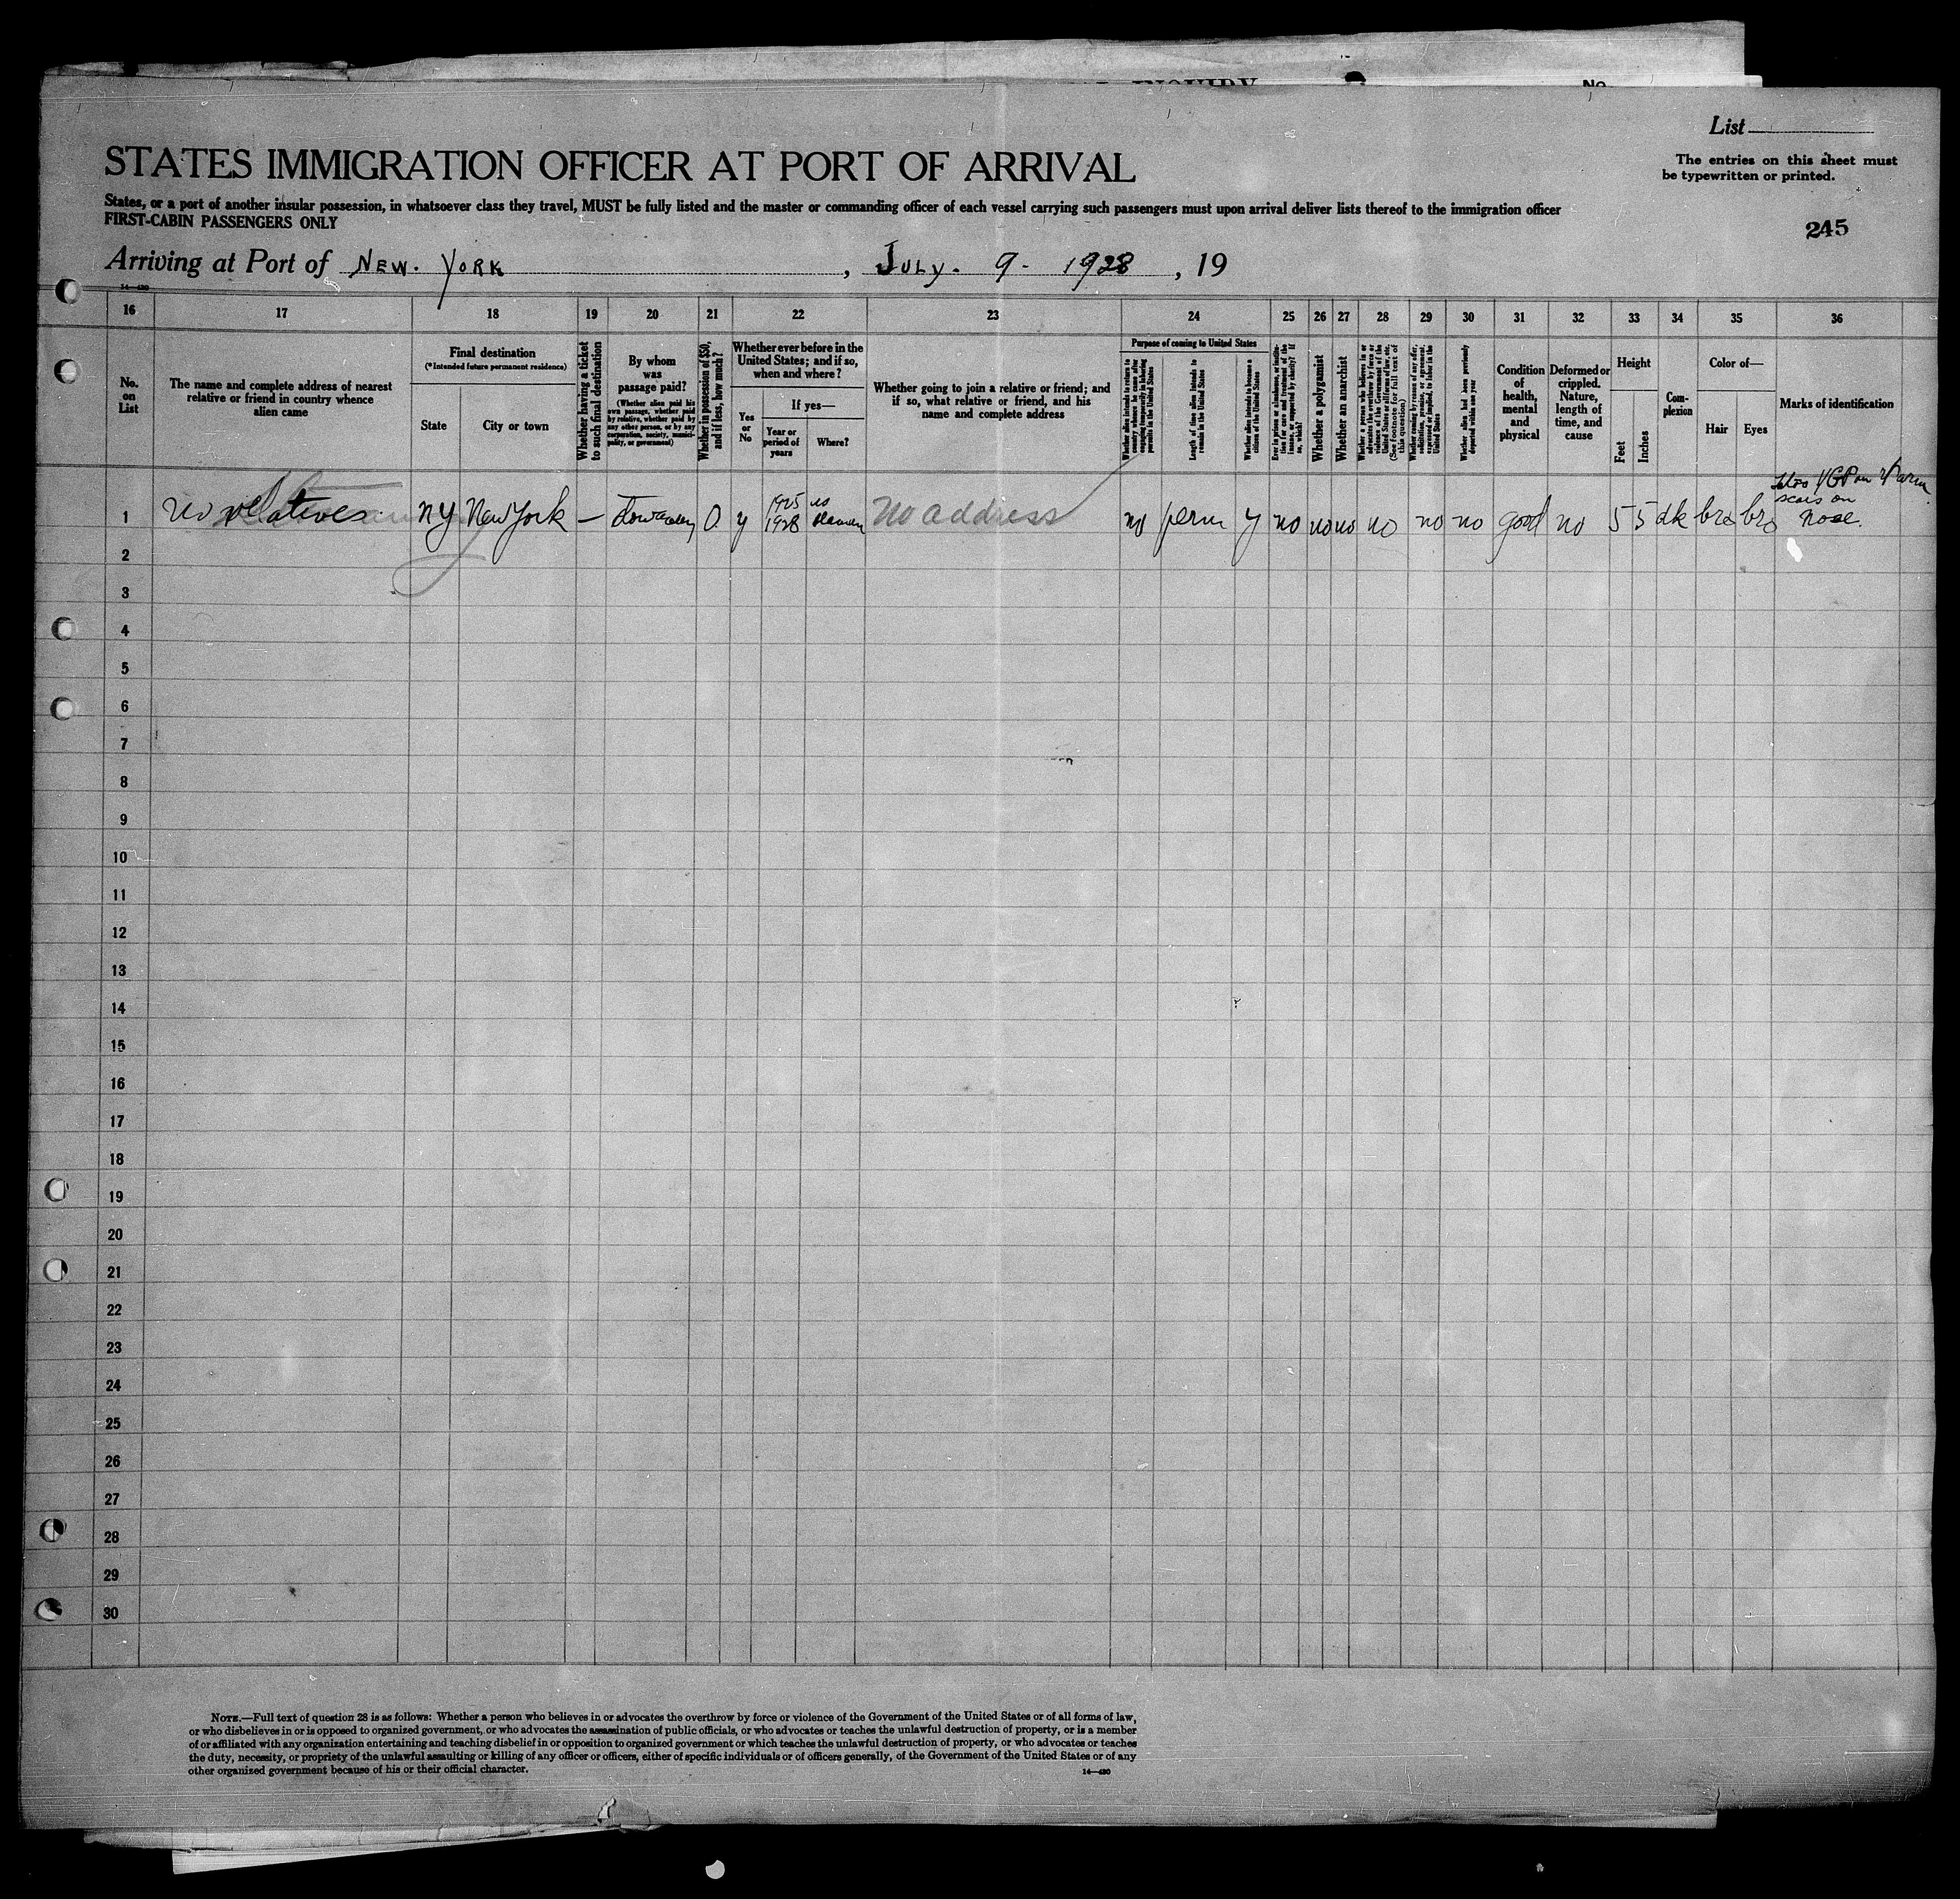 INQUIRY
No.
List
STATES IMMIGRATION OFFICER AT PORT OF ARRIVAL
The entries on this sheet must
be typewritten or printed.
States, or a port of another insular possession, in whatsoever class they travel, MUST be fully listed and the master or commanding officer of each vessel carrying such passengers must upon arrival deliver lists thereof to the immigration officer
FIRST-CABIN PASSENGERS ONLY
245
Arriving at Port of NEW. YORK, JULY. 9- 1928, 19
14-430
16 17 18 19 20 21 22 23 24 25 26 27 28 29 30 31 32 33 34 35 36
No.
on
List
The name and complete address of nearest
relative or friend in country whence
alien came
Final destination
(*Intended future permanent residence)
State
City or town
Whether having a ticket
to such final destination
By whom
was
passage paid?
(Whether alien paid his
own passage, whether paid
by relative, whether paid by
any other person, or by any
corporation, society, munici-
pality, or government)
Whether in possession of $50,
and if less, how much?
Whether ever before in the
United States; and if so,
when and where?
Yes
or
No
If yes—
Year or
period of
years
Where?
Whether going to join a relative or friend; and
if so, what relative or friend, and his
name and complete address
Purpose of coming to United States
Whether alien intends to return to
country whence he came after
engaging temporarily in laboring
pursuits in the United States
Length of time alien intends to
remain in the United States
Whether alien intends to become a
citizen of the United States
Ever in prison or almshouse, or institu-
tion for care and treatment of the
insane, or supported by charity? If
so, which?
Whether a polygamist
Whether an anarchist
(See footnote for full text of
this question)
Whether coming by reason of any offer,
solicitation, promise, or agreement,
expressed or implied, to labor in the
United States
Whether alien had been previously
deported within one year
Condition
of
health,
mental
and
physical
Deformed or
crippled.
Nature,
length of
time, and
cause
Height
Feet
Inches
Com-
plexion
Color of—
Hair
Eyes
Marks of identification
1 no relatives NY New York — 0 y 1925 1928 us No address no perm y no no no no no no good no 5 5 dk bro bro scars on
nose.
2
3
4
5
6
7
8
9
10
11
12
13
14
15
16
17
18
19
20
21
22
23
24
25
26
27
28
29
30
NOTE.—Full text of question 28 is as follows: Whether a person who believes in or advocates the overthrow by force or violence of the Government of the United States or of all forms of law,
or who disbelieves in or is opposed to organized government, or who advocates the assassination of public officials, or who advocates or teaches the unlawful destruction of property, or is a member
of or affiliated with any organization entertaining and teaching disbelief in or opposition to organized government or which teaches the unlawful destruction of property, or who advocates or teaches
the duty, necessity, or propriety of the unlawful assaulting or killing of any officer or officers, either of specific individuals or of officers generally, of the Government of the United States or of any
other organized government because of his or their official character.
14-430